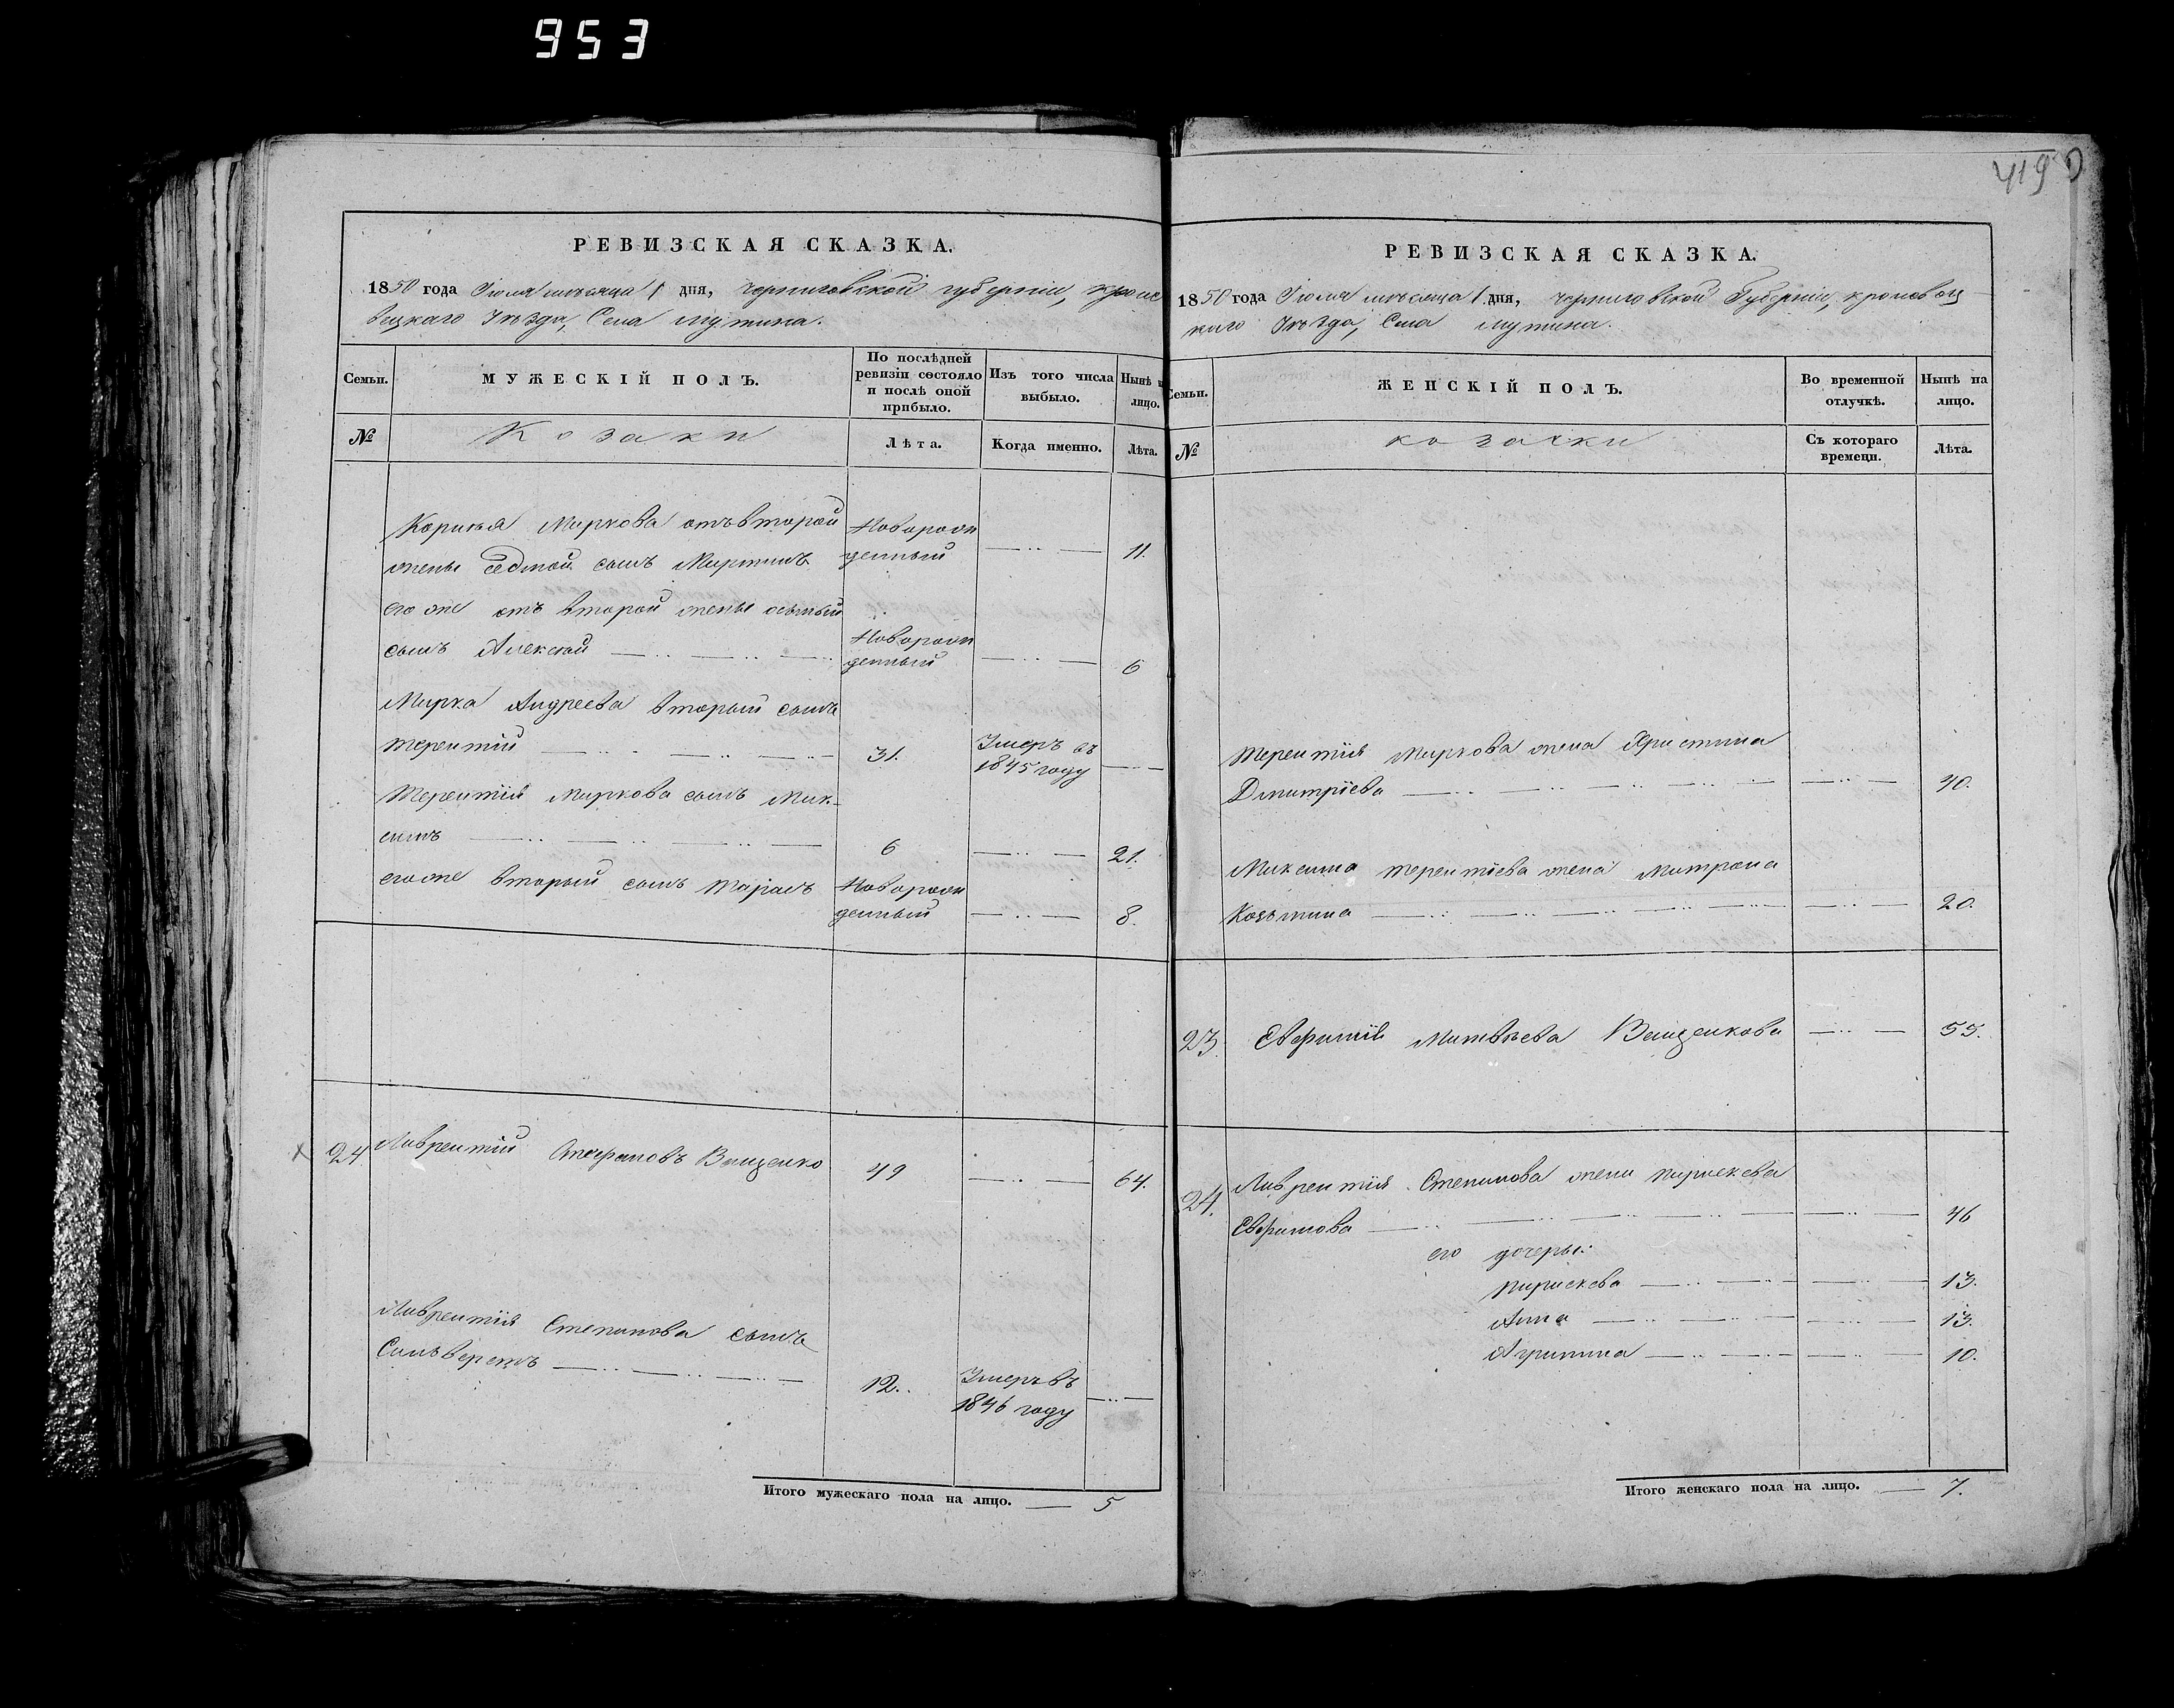 953
419
РЕВИЗСКАЯ СКАЗКА.
1850 года Іюля мѣсяца 1 дня, Черниговской губерніи, Кроле
вецкаго Уѣзда, Села Мутина.
Семьи.
МУЖЕСКІЙ ПОЛЪ.
По послѣдней ревизіи состояло и послѣ оной прибыло.
Изъ того числа выбыло.
Нынѣ на лицо.
№
Козаки
Лѣта.
Когда именно.
Лѣта.
Маркова отъ второй Новорож
жены седмой сынъ Мартинъ денный —..— 11.
его же отъ второй жены осьмый
сынъ Алексѣй —..— Новорож
денный —..— 6
Марка Андреева вторый сынъ
Терентій —..— 31. Умеръ въ
1845 году —
Терентія Маркова сынъ Мак-
симъ —..— 6 —..— 21.
его же вторый сынъ Тарасъ Новорож
денный —..— 8.
24 Лаврентій Стефановъ Ващенко 49 —..— 64.
Лаврентія Степанова сынъ
Сильверстъ —..— 12. Умеръ въ
1846 году —..—
Итого мужескаго пола на лицо. — 5
РЕВИЗСКАЯ СКАЗКА.
1850 года Іюля мѣсяца 1 дня, Черниговской Губерніи, Кролевец
каго Уѣзда, Села Мутина.
Семьи.
ЖЕНСКІЙ ПОЛЪ.
Во временной отлучкѣ.
Нынѣ на лицо.
№
козачки
Съ котораго времени.
Лѣта.
Терентія Маркова жена Христина
Дмитріева —..— 40.
Максима Терентіева жена Матрона
Козьмина —..— 20.
23. Матвѣева Ващенкова —..— 55.
24. Лаврентія Степанова жена Параскева
Евфимова —..— 46
его дочеры:
Параскева —..— 13.
Анна —..— 13.
Агрипина —..— 10.
Итого женскаго пола на лицо. — 7.